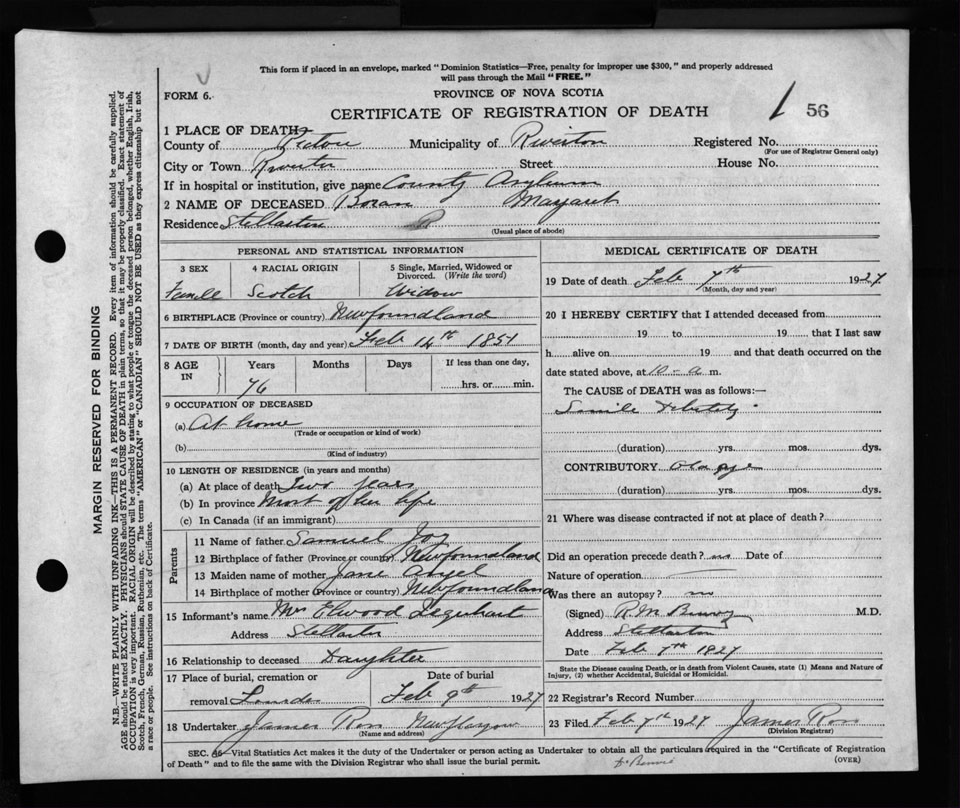 This form if placed in an envelope, marked "Dominion Statistics—Free, penalty for improper use $300," and properly addressed
will pass through the Mail "FREE."
FORM 6.
PROVINCE OF NOVA SCOTIA
CERTIFICATE OF REGISTRATION OF DEATH
56
1 PLACE OF DEATH
County of Pictou Municipality of Riverton Registered No.
(For use of Registrar General only)
City or Town Riverton Street House No.
If in hospital or institution, give name County Asylum
2 NAME OF DECEASED Boran Margaret
Residence Stellarton
(Usual place of abode)
PERSONAL AND STATISTICAL INFORMATION
3 SEX 4 RACIAL ORIGIN 5 Single, Married, Widowed or Divorced. (Write the word)
Female Scotch Widow
6 BIRTHPLACE (Province or country) Newfoundland
7 DATE OF BIRTH (month, day and year) Feb 14th 1851
8 AGE IN Years Months Days If less than one day,
76 hrs. or min.
9 OCCUPATION OF DECEASED
(a) At home
(Trade or occupation or kind of work)
(b)
(Kind of industry)
10 LENGTH OF RESIDENCE (in years and months)
(a) At place of death Two years
(b) In province Most of her life
(c) In Canada (if an immigrant)
Parents
11 Name of father Samuel Joy
12 Birthplace of father (Province or country) Newfoundland
13 Maiden name of mother Jane Angel
14 Birthplace of mother (Province or country) Newfoundland
15 Informant's name Mrs Elwood
Address Stellarton
16 Relationship to deceased Daughter
17 Place of burial, cremation or Date of burial
removal Feb 9th 1927
18 Undertaker James Ross New Glasgow
(Name and address)
MEDICAL CERTIFICATE OF DEATH
19 Date of death Feb 7th 1927
(Month, day and year)
20 I HEREBY CERTIFY that I attended deceased from
19 to 19 that I last saw
h alive on 19 and that death occurred on the
date stated above, at 10 - a m.
The CAUSE of DEATH was as follows:—
Senile debility
(duration) yrs. mos. dys.
CONTRIBUTORY Old age
(duration) yrs. mos. dys.
21 Where was disease contracted if not at place of death?
Did an operation precede death? no Date of
Nature of operation
Was there an autopsy? no
(Signed) R. M. M.D.
Address Stellarton
Date Feb 7th 1827
State the Disease causing Death, or in death from Violent Causes, state (1) Means and Nature of
Injury, (2) whether Accidental, Suicidal or Homicidal.
22 Registrar's Record Number
23 Filed Feb 7th 1927 James Ross
(Division Registrar)
SEC. 36—Vital Statistics Act makes it the duty of the Undertaker or person acting as Undertaker to obtain all the particulars required in the "Certificate of Registration
of Death" and to file the same with the Division Registrar who shall issue the burial permit.
(OVER)
MARGIN RESERVED FOR BINDING
N.B.—WRITE PLAINLY WITH UNFADING INK—THIS IS A PERMANENT RECORD. Every item of information should be carefully supplied.
AGE should be stated EXACTLY. PHYSICIANS should STATE CAUSE OF DEATH in plain terms, so that it may be properly classified. Exact statement of
OCCUPATION is very important. RACIAL ORIGIN will be described by stating to what people or tongue the deceased person belonged, whether English, Irish,
Scotch, French, German, Russian, Ruthenian, etc. The terms "AMERICAN" or "CANADIAN" SHOULD NOT BE USED as they express citizenship but not
a race or people. See instructions on back of Certificate.